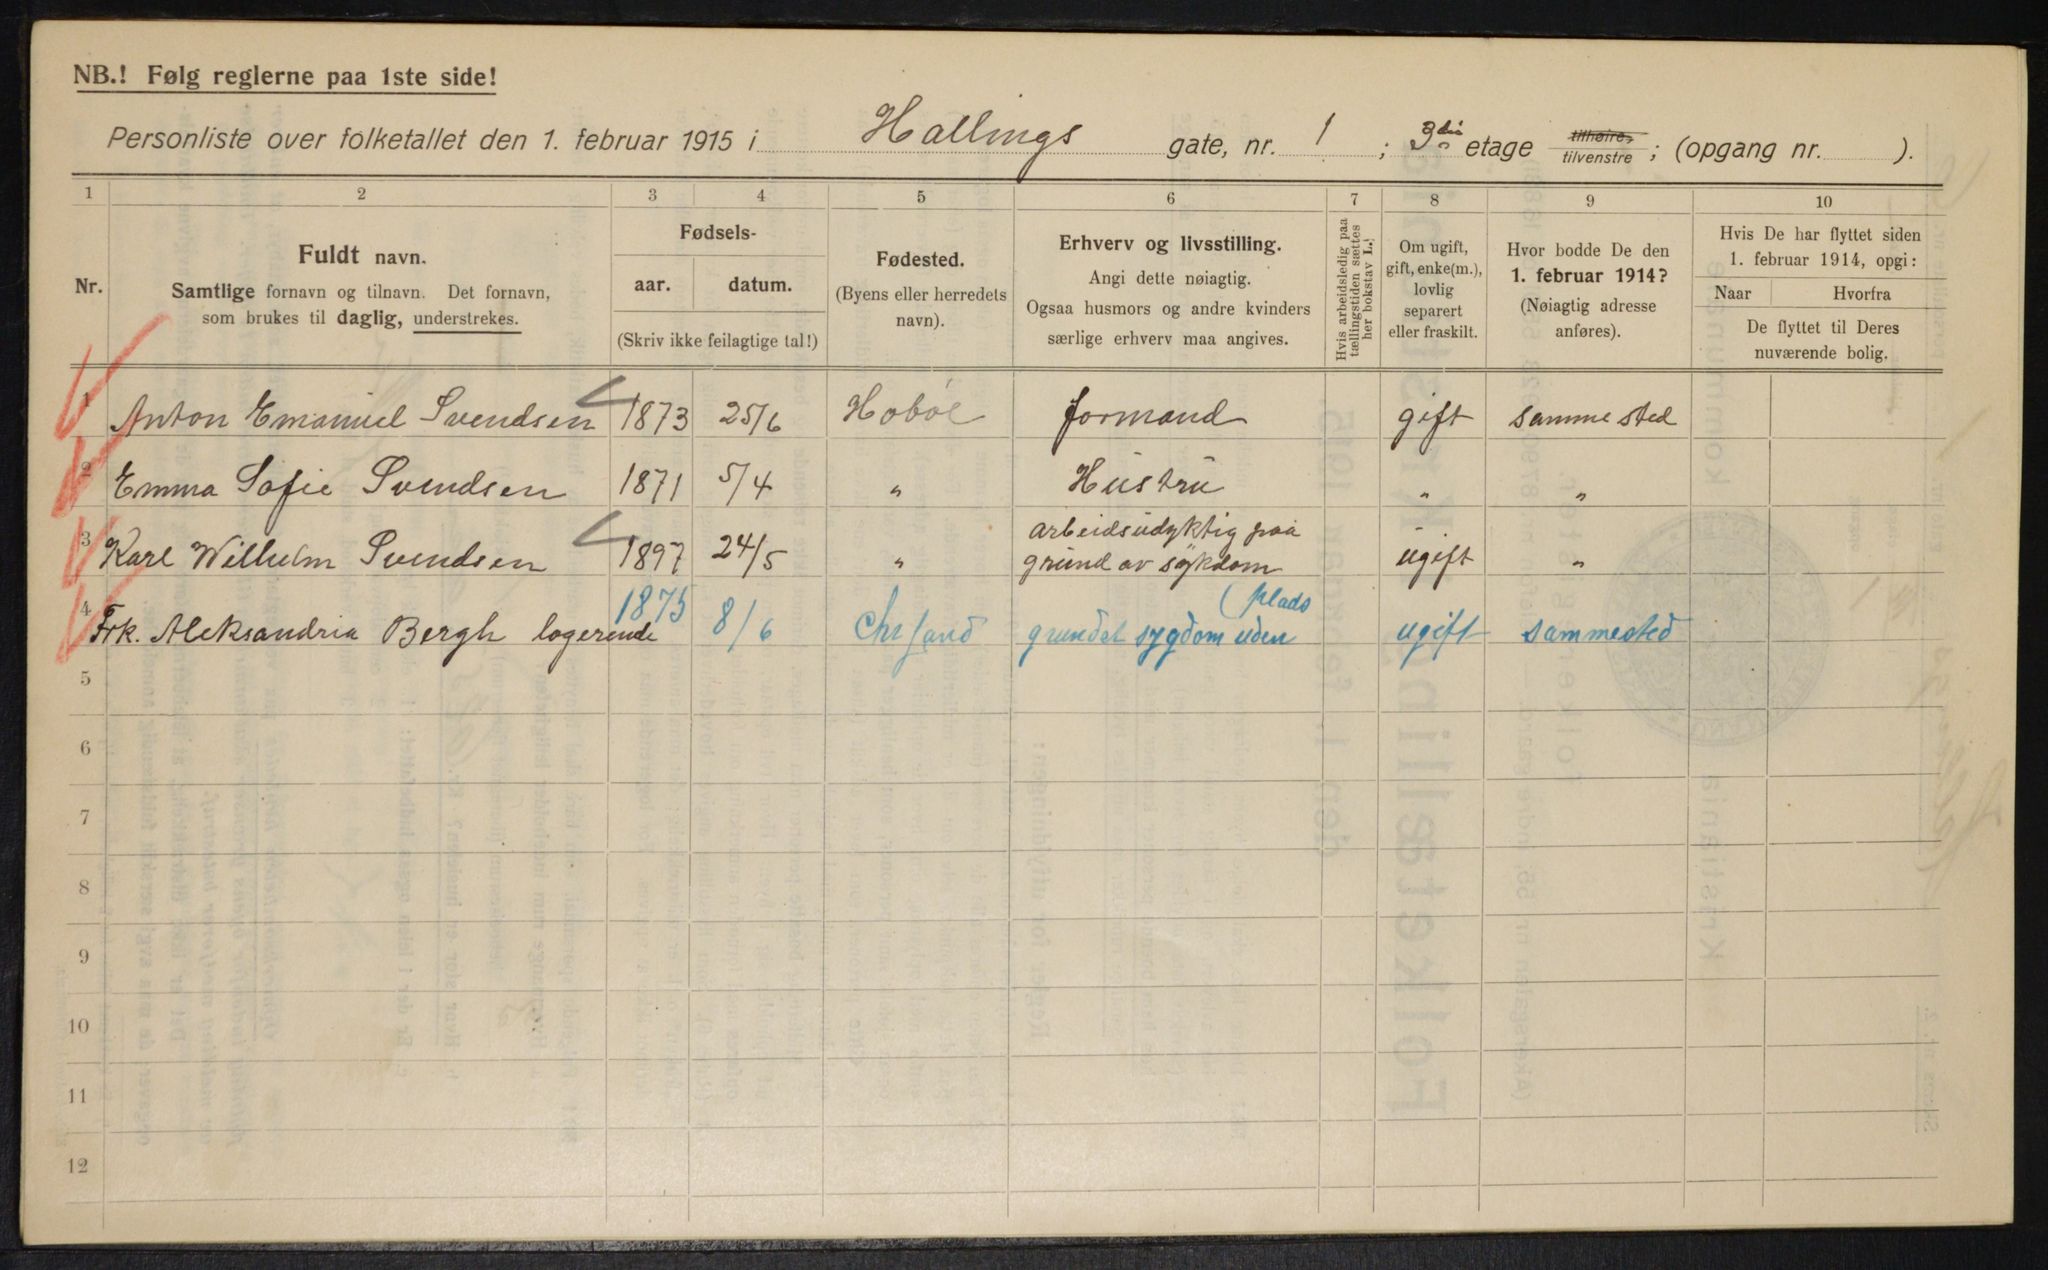 NB.! Følg reglerne paa 1ste side!
Personliste over folketallet den 1. februar 1915 i Hallings gate, nr. 1 ; 3die etage tilhøire, tilvenstre ; (opgang nr. ).
1 2 3 4 5 6 7 8 9 10
Nr.
Fuldt navn.
Samtlige fornavn og tilnavn. Det fornavn,
som brukes til daglig, understrekes.
Fødsels-
aar. datum.
(Skriv ikke feilagtige tal!)
Fødested.
(Byens eller herredets
navn).
Erhverv og livsstilling.
Angi dette nøiagtig.
Ogsaa husmors og andre kvinders
særlige erhverv maa angives.
Hvis arbeidsledig paa
tællingstiden sættes
her bokstav L.!
Om ugift,
gift, enke(m.),
lovlig
separert
eller fraskilt.
Hvor bodde De den
1. februar 1914?
(Nøiagtig adresse
anføres).
Hvis De har flyttet siden
1. februar 1914, opgi:
Naar Hvorfra
De flyttet til Deres
nuværende bolig.
1 Anton Emanuel Svendsen 1873 25/6 Hobøl formand gift samme sted
2 Emma Sofie Svendsen 1871 5/4 „ Hustru „ „
3 Karl Wilhelm Svendsen 1897 24/5 „ arbeidsudyktig paa
grund av sykdom ugift „
4 Frk. Aleksandria Bergh logerende 1875 8/6 Chrsand grundet sygdom uden
(plads ugift sammested
5
6
7
8
9
10
11
12